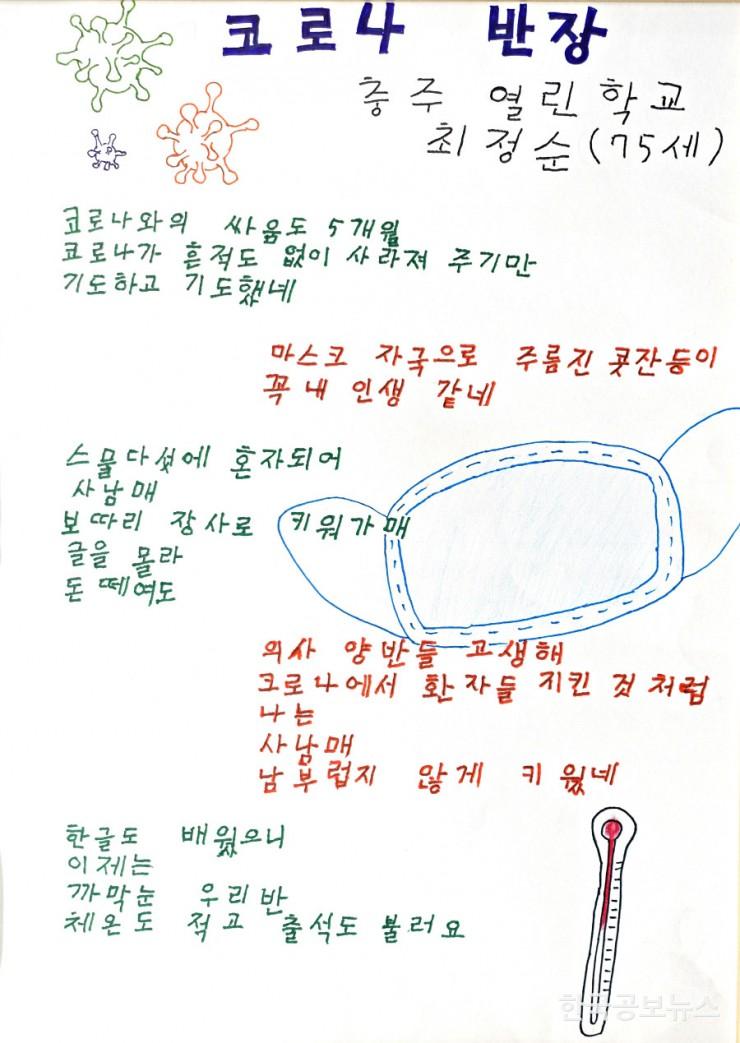 코로나 반장
충주 열린학교
최정순(75세)
코로나와의 싸움도 5개월
코로나가 흔적도 없이 사라져 주기만
기도하고 기도했네
마스크 자국으로 주름진 콧잔등이
꼭 내 인생 같네
스물다섯에 혼자되어
사남매
보따리 장사로 키워가매
글을 몰라
돈 떼여도
의사 양반들 고생해
코로나에서 환자들 지킨 것처럼
나는
사남매
남부럽지 않게 키웠네
한글도 배웠으니
이제는
까막눈 우리반
체온도 적고 출석도 불러요
한국공보뉴스